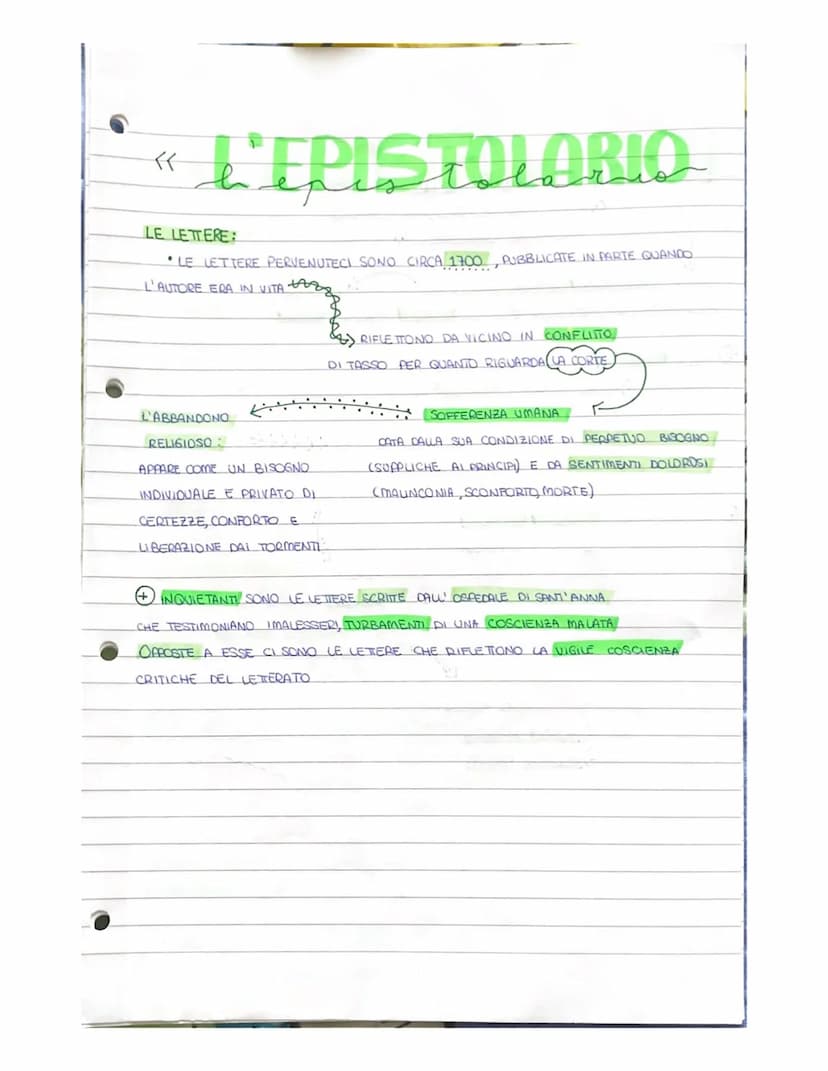 « L'EPISTOLARIO
L'epistolario
LE LETTERE:
• LE LETTERE PERVENUTECI SONO CIRCA 1700, PUBBLICATE IN PARTE QUANDO
L'AUTORE ERA IN VITA
RIFLETTONO DA VICINO IN CONFLITTO
DI TASSO PER QUANTO RIGUARDA LA CORTE
SOFFERENZA UMANA
DATA DALLA SUA CONDIZIONE DI PERPETUO BISOGNO
(SUPPLICHE AI PRINCIPI) E DA SENTIMENTI DOLOROSI
(MALINCONIA, SCONFORTO, MORTE)
L'ABBANDONO
RELIGIOSO:
APPARE COME UN BISOGNO
INDIVIDUALE E PRIVATO DI
CERTEZZE, CONFORTO E
LIBERAZIONE DAI TORMENTI
+ INQUIETANTI SONO LE LETTERE SCRITTE DALL'OSPEDALE DI SANT'ANNA
CHE TESTIMONIANO I MALESSERI, TURBAMENTI DI UNA COSCIENZA MALATA
OPPOSTE A ESSE CI SONO LE LETTERE CHE RIFLETTONO LA VIGILE COSCIENZA
CRITICHE DEL LETTERATO